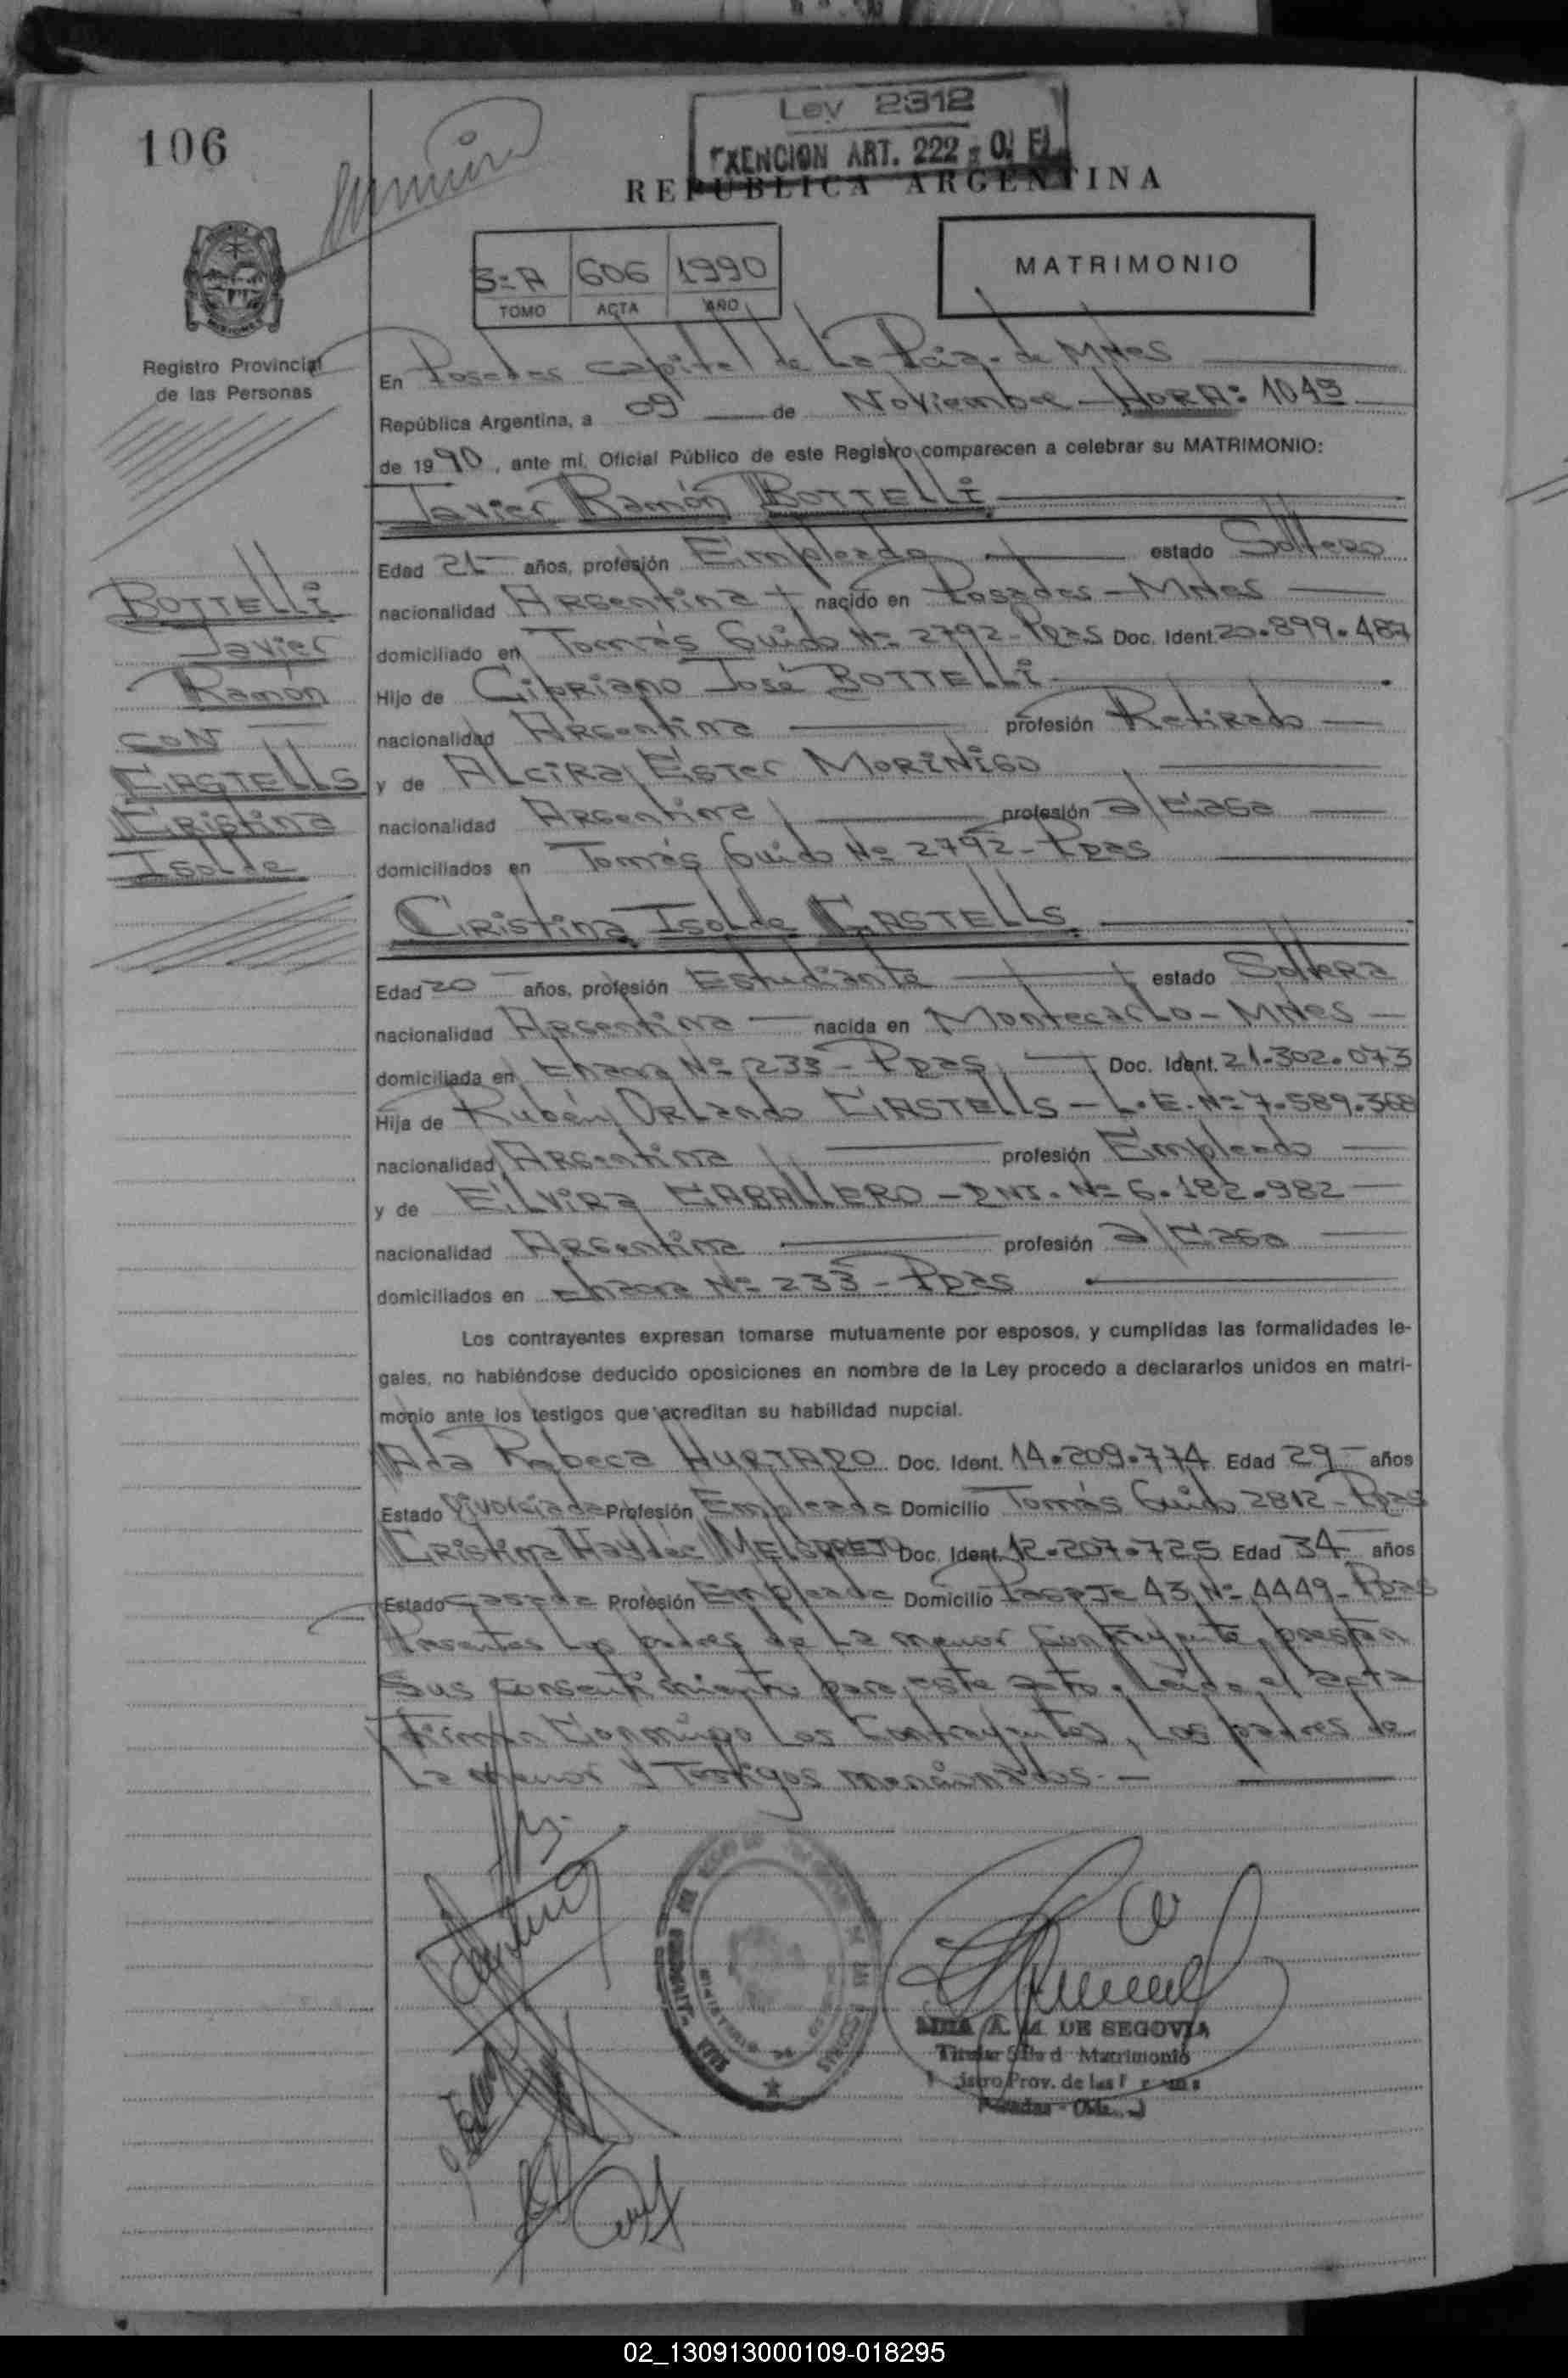 106
Ley 2312
EXENCION ART. 222 - O. F.
REPUBLICA ARGENTINA
3=A 606 1990
TOMO ACTA AÑO
MATRIMONIO
Registro Provincial
de las Personas
En Posadas Capital de La Pcia. de Mnes
República Argentina, a 09 de Noviembre - HORA: 1045
de 1990, ante mí, Oficial Público de este Registro comparecen a celebrar su MATRIMONIO:
Javier Ramón BOTTELLI
Edad 21 años, profesión Empleado estado Soltero
nacionalidad Argentina nacido en Posadas - Mnes
domiciliado en Tomás Guido Nº 2792 - Pdas Doc. Ident. 20.899.487
Hijo de Cipriano José BOTTELLI
nacionalidad Argentina profesión Retirado
y de Alcira Ester MORINIGO
nacionalidad Argentina profesión a/casa
domiciliados en Tomás Guido Nº 2792 - Pdas
BOTTELLI
Javier
Ramón
CON
CASTELLS
Cristina
Isolde
Cristina Isolde CASTELLS
Edad 20 años, profesión Estudiante estado Soltera
nacionalidad Argentina nacida en Montecarlo - Mnes
domiciliada en Chacra Nº 233 - Pdas Doc. Ident. 21.302.073
Hija de Rubén Orlando CASTELLS - L.E. Nº 7.589.368
nacionalidad Argentina profesión Empleado
y de Elvira CABALLERO - DNI. Nº 6.182.982
nacionalidad Argentina profesión a/casa
domiciliados en Chacra Nº 233 - Pdas
Los contrayentes expresan tomarse mutuamente por esposos, y cumplidas las formalidades le-
gales, no habiéndose deducido oposiciones en nombre de la Ley procedo a declararlos unidos en matri-
monio ante los testigos que acreditan su habilidad nupcial.
Ada Rebeca HURTADO Doc. Ident. 14.209.774 Edad 29 años
Estado Divorciada Profesión Empleada Domicilio Tomás Guido 2812 - Pdas
Cristina Haydée Doc. Ident. 12.207.725 Edad 34 años
Estado Casada Profesión Empleada Domicilio Pasaje 43 Nº 4449 - Pdas
Presentes los padres de la menor contrayente, prestan
sus consentimiento para este acto. Leída el acta
firman conmigo los contrayentes, los padres de
la menor y testigos mencionados.
A. M. DE SEGOVIA
Titular Matrimonio
Prov. de las
Posadas
02_130913000109-018295